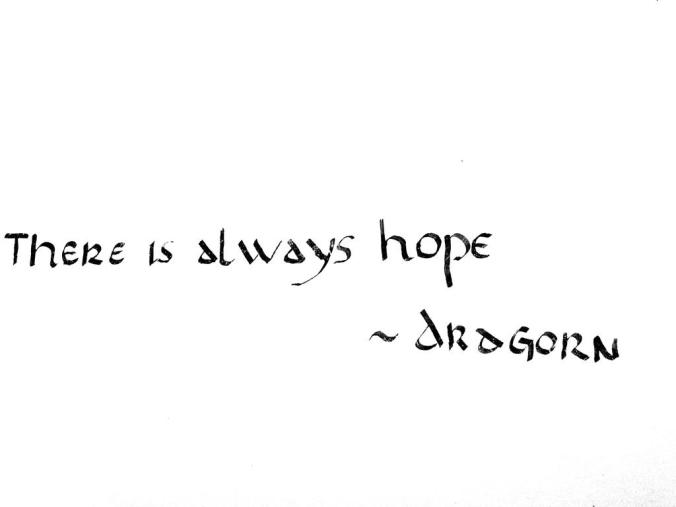 There is always hope
~ Aragorn